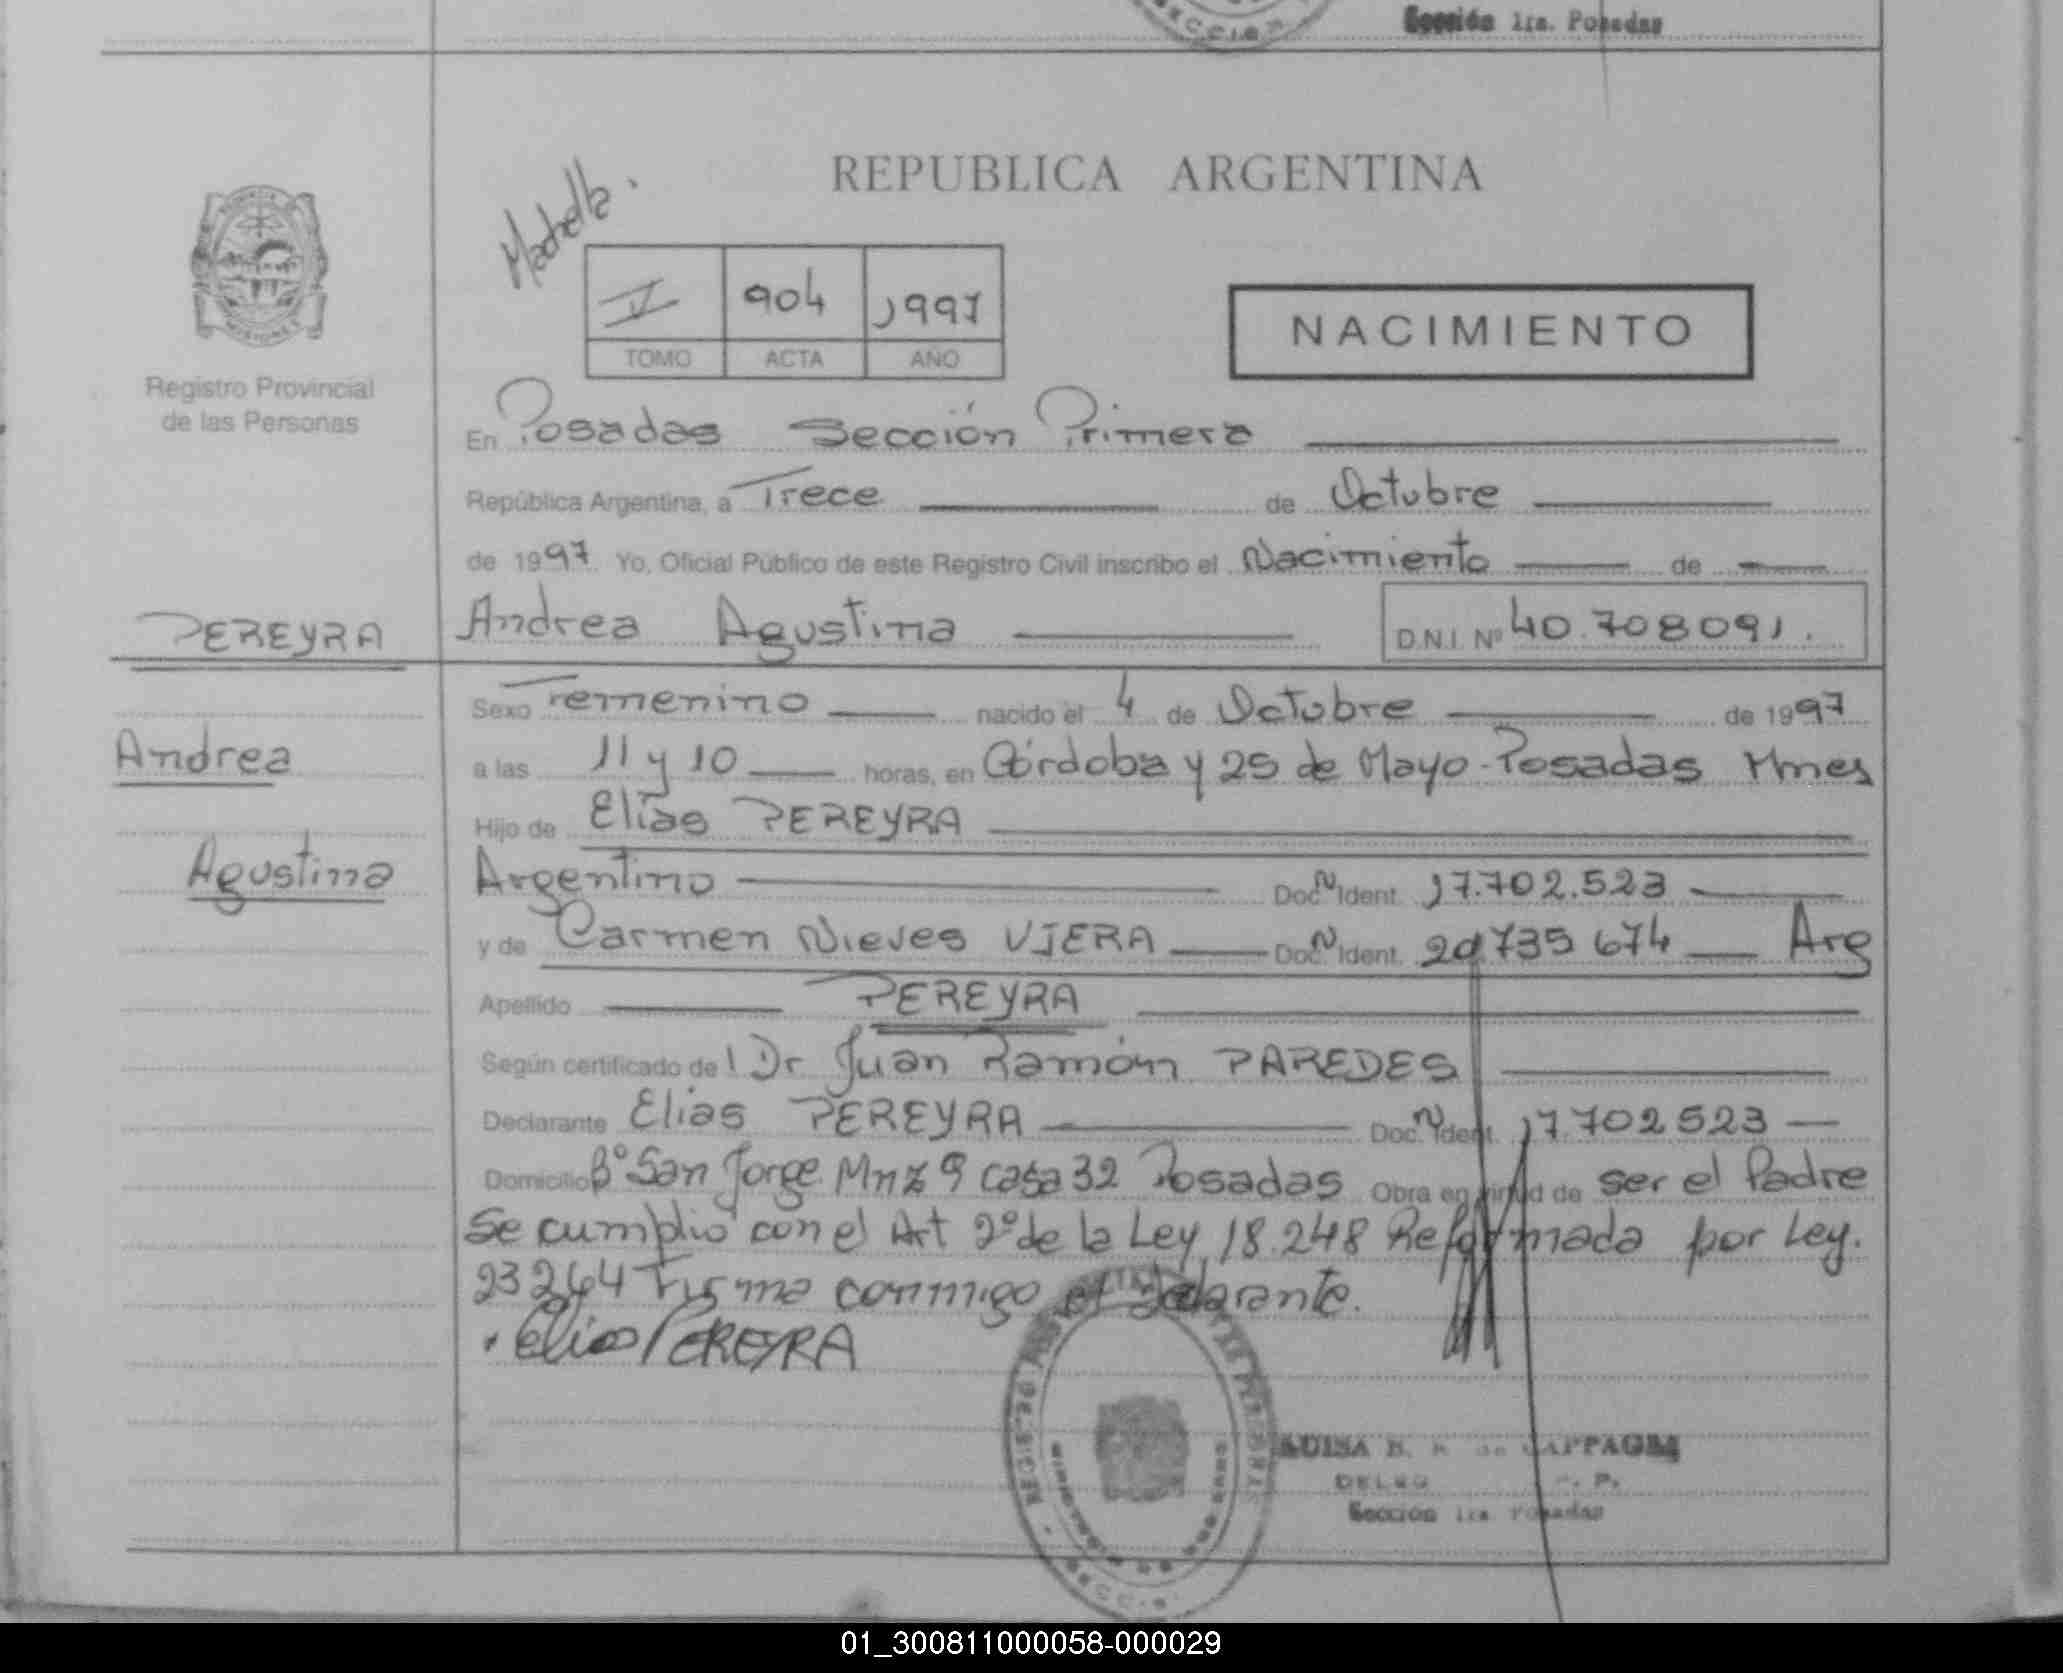 Sección 1ra. Posadas
REPUBLICA ARGENTINA
V 904 1997
TOMO ACTA AÑO
NACIMIENTO
MISIONES
Registro Provincial
de las Personas
En Posadas Sección Primera
República Argentina, a Trece de Octubre
de 1997 Yo, Oficial Público de este Registro Civil inscribo el Nacimiento de
PEREYRA Andrea Agustina D.N.I. Nº 40.708091.
Sexo Femenino nacido el 4 de Octubre de 1997
Andrea a las 11 y 10 horas, en Córdoba y 25 de Mayo-Posadas Mnes
Hijo de Elías PEREYRA
Agustina Argentino Doc N Ident. 17.702.523
y de Carmen Nieves VIERA Doc N Ident. 735 674 Arg
Apellido PEREYRA
Según certificado del Dr Juan Ramón PAREDES
Declarante Elias PEREYRA Doc. N Ident. 17.702523
Domicilio Bº San Jorge Mnz 9 casa 32 Posadas Obra en virtud de ser el Padre
Se cumplio con el Art 2º de la Ley 18.248 Reformada por Ley.
23264 Firma conmigo el declarante.
Elias PEREYRA
LUISA de CAPPAGLI
Sección 1ra Posadas
01_300811000058-000029